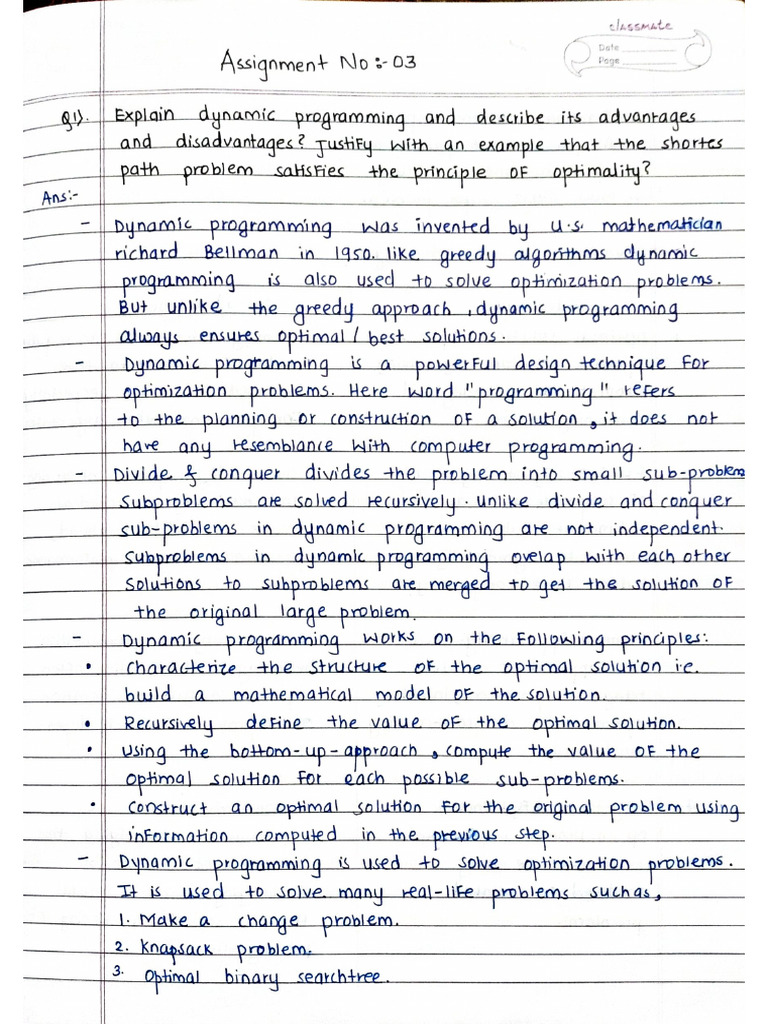 classmate
Date
Page
Assignment No:-03
Q1). Explain dynamic programming and describe its advantages
and disadvantages? Justify with an example that the shortes
path problem satisfies the principle of optimality?
Ans:-
- Dynamic programming was invented by U.S. mathematician
richard Bellman in 1950. like greedy algorithms dynamic
programming is also used to solve optimization problems.
But unlike the greedy approach, dynamic programming
always ensures optimal/best solutions.
- Dynamic programming is a powerful design technique for
optimization problems. Here word "programming" refers
to the planning or construction of a solution, it does not
have any resemblance with computer programming.
- Divide & conquer divides the problem into small sub-problem
subproblems are solved recursively. unlike divide and conquer
sub-problems in dynamic programming are not independent.
subproblems in dynamic programming ovelap with each other
solutions to subproblems are merged to get the solution of
the original large problem.
- Dynamic programming works on the following principles:
• characterize the structure of the optimal solution i.e.
build a mathematical model of the solution.
• Recursively define the value of the optimal solution.
• using the bottom-up-approach, compute the value of the
optimal solution for each possible sub-problems.
• construct an optimal solution for the original problem using
information computed in the previous step.
- Dynamic programming is used to solve optimization problems.
It is used to solve many real-life problems such as,
1. Make a change problem.
2. Knapsack problem.
3. Optimal binary searchtree.